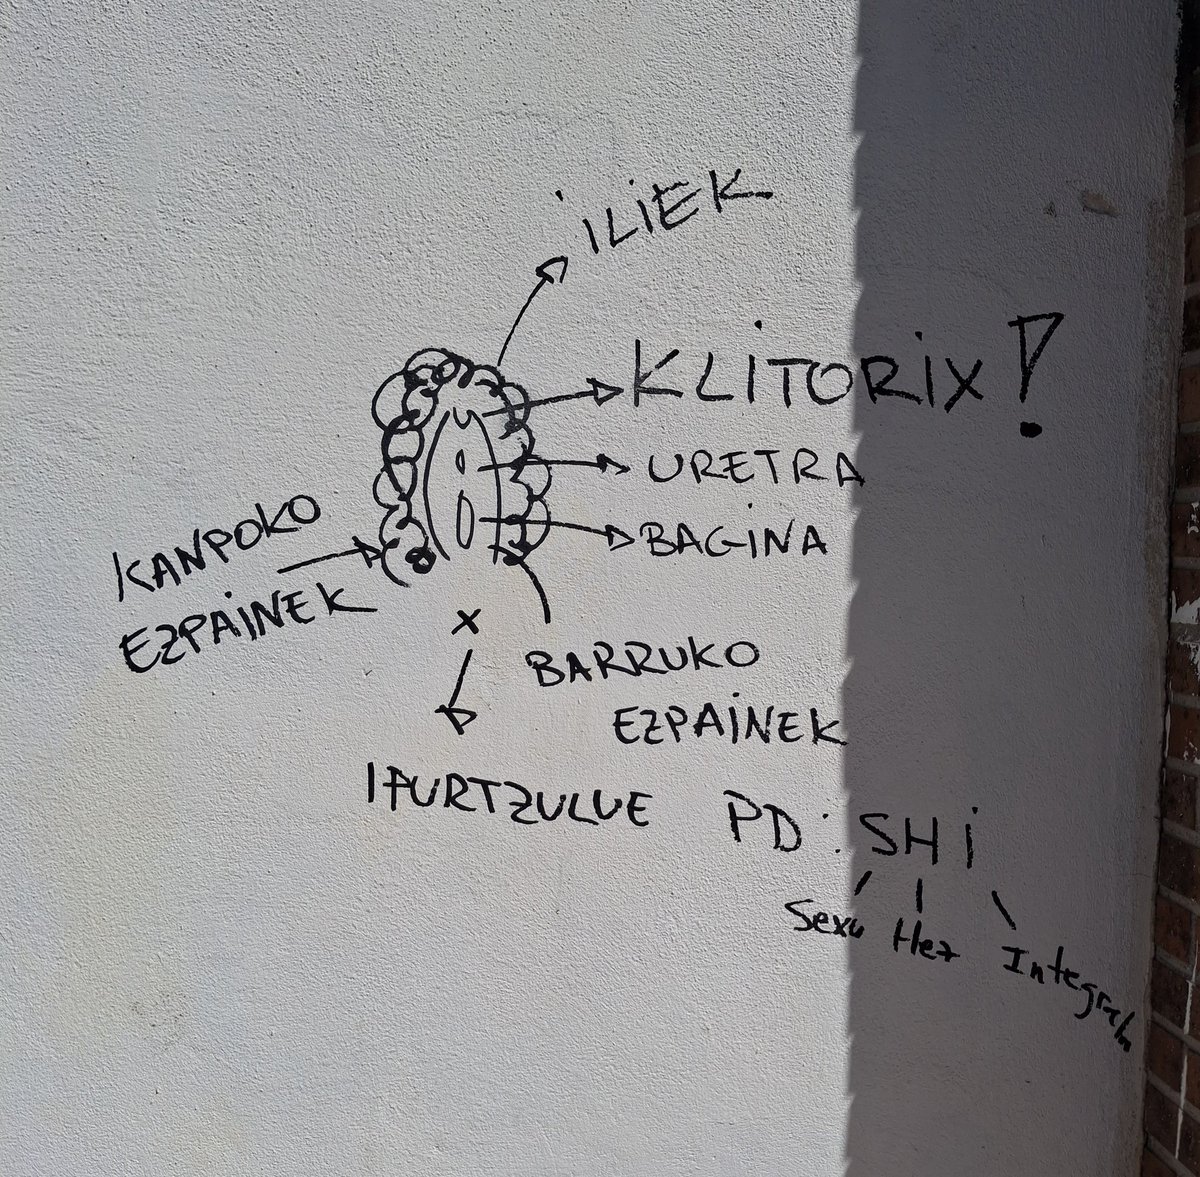 iLiEK
KLiTORiX!
URETRA
BAGiNA
KANPOKO
EZPAiNEK
BARRUKO
EZPAiNEK
x
IPURTZULUE
PD: SHi
Sexu Hez Integrala